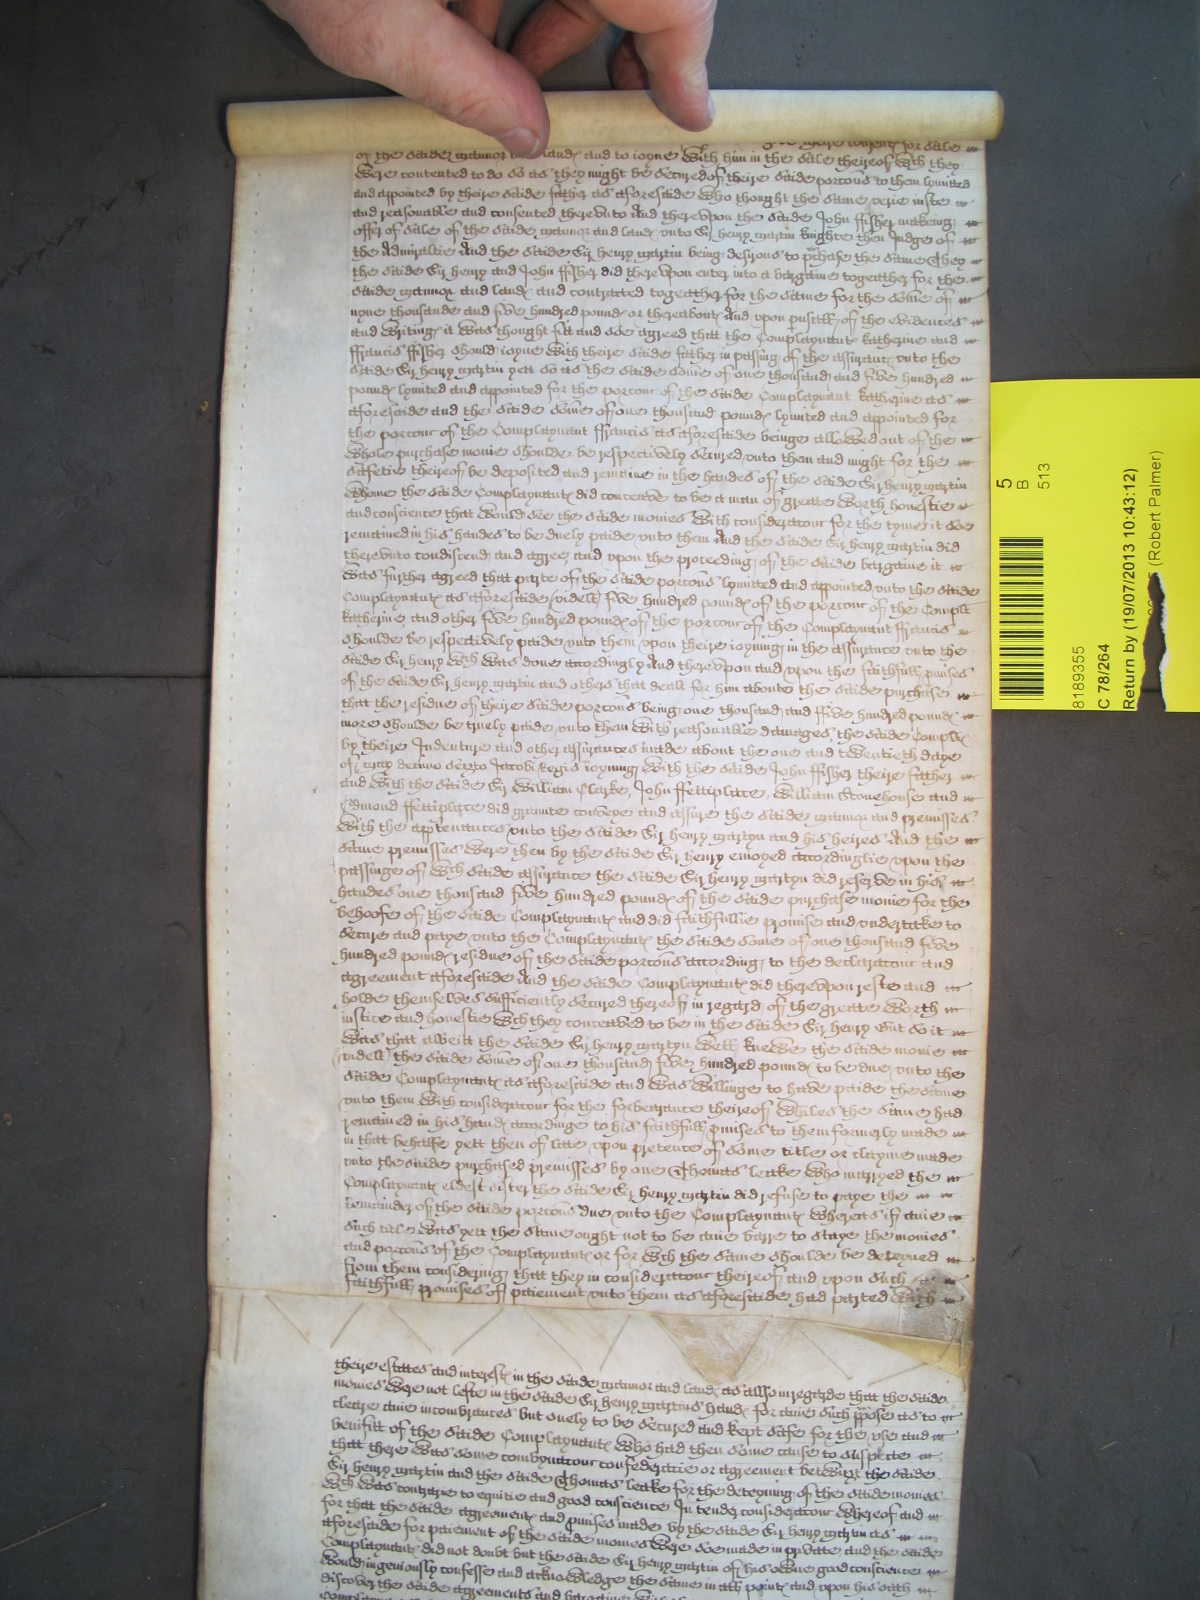 there consent for sale
of the saide mannor landes and to ioyne with him in the sale theireof wch they
were contented to do so as they might be secured of theire saide porcons to them lymitted
and appointed by theire saide father as aforesaide who thought the same verie iuste
and reasonable and consented therevnto And therevpon the saide John ffisher makeing
offer of sale of the saide mannor and landes vnto Sir henry martin knighte then Judge of
the Admiraltie And the saide Sir henry martin being desyrous to purchase the same They
the saide Sir henry and John ffisher did therevpon enter into a bargaine togeather for the
saide mannor and landes and contracted togeather for the same for the some of
nyne thousande and five hundred poundes or thereaboutes And vpon pusall of the evidences
and writinges it was thought fitt and soe agreed that the Complaynantes katherine and
ffrancis ffisher should ioyne with theire saide father in passing of the assurances vnto the
saide Sir henry martin yett so as the saide some of one thousand and five hundred
poundes lymited and appointed for the porcon of the saide Complaynant katherine as
aforesaide and the saide some of one thousand poundes lymited and appointed for
the porcon of the Complaynant ffrancis as aforesaide beinge allowed out of the
whole purchase monie shoulde be respectively secured vnto them and might for the
safetie theireof be deposited and remaine in the handes of the saide Sir henry martin
whome the saide Complaynantes did conceave to be a man of greate worth honestie
and conscience that would see the saide monies with consideracon for the tyme it soe
remained in his handes to be duely paide vnto them And the saide Sir henry martin did
therevnto condiscend and agree, and vpon the proceeding of the saide bargaine it
was further agreed that parte of the saide porcons lymitted and appointed vnto the saide
Complaynantes as aforesaide (videlt) five hundred poundes of the porcon of the Complt
katherine, and other five hundred poundes of the porcon of the Complaynant ffrancis
shoulde be respectively paide vnto them vpon theire ioyning in the assurance vnto the
saide Sir henry wch was done accordingly And therevpon and vpon the faithfull pmises
of the saide Sir henry martin and others that dealt for him aboute the saide purchase
that the residue of theire saide porcons being one thousand and ffive hundred poundes
more shoulde be truely paide vnto them with reasonable damages, the saide Complts
by theire Indenture and other assurances made about the one and twentieth daye
of may decimo sexto Jacobi Regis ioyning with the saide John ffisher theire father
and with the saide Sir william Clarke, John ffettiplace, william Stonehouse and
Edmond ffettiplace did graunte conveye and assure the saide mannor and premisses
with the apptenances vnto the saide Sir henry martyn and his heires And the
same premisses were then by the saide Sir henry enioyed accordinglie vpon the
passinge of wch saide assurance the saide Sir henry martyn did reserve in his
handes one thousand five hundred poundes of the saide purchase monie for the
behoofe of the saide Complaynantes and did faithfullie promise and vndertake to
secure and paye vnto the Complaynantes the saide some of one thousand five
hundred poundes residue of the saide porcons according to the declaracon and
agreement aforesaide And the saide Complaynantes did therevpon reste and
holde themselves sufficiently secured thereof in regard of the greate worth
iustice and honestie wch they conceaved to be in the saide Sir henry But so it
was that albeit the saide Sir henry martyn well knewe the saide monie
(videlt) the saide some of one thousand five hundred poundes to be due vnto the
saide Complaynantes as aforesaide and was willinge to have paide the same
vnto them with consideracon for the forbearance theireof whiles the same had
remained in his handes accordinge to his faithfull pmises to them formerly made
in that behalfe yett then of late vpon pretence of some title or clayme made
vnto the saide purchased premisses by one Thomas leake who marryed the
Complaynantes eldest sister the saide Sir henry martin did refuse to paye the
remainder of the saide porcons due vnto the Complaynantes whereas if anie
such title was yett the same ought not to be anie barre to staye the monies
and porcons of the Complaynantes or for wch the same shoulde be deteyned
from them considering that they in consideracon theireof and vpon such
faithfull promises of paiement vnto them as aforesaide had parted with
theire estates and interest in the saide mannor and landes as allso in regarde that the saide
monies were not lefte in the saide Sir henry martins handes for anie such ppose as to
cleare anie incombrances but onely to be secured and kept safe for the vse and
benifitt of the saide Complaynantes who had then some cause to suspecte
that there was some combynacon confederacie or agreement betwixt the saide
Sir henry martin and the saide Thomas leake for the deteyning of the saide monies
wch was contrarie to equitie and good conscience In tender consideracon whereof and
for that the saide agreementes and pmises made by the saide Sir henry martin as
aforesaide for paiement of the saide monies were soe made in pvate and the saide
Complaynantes did not doubt but the saide Sir henry martin of his owne good conscience
would ingeniously confesse and acknowledge the same in all pointes and vpon his oath
discover the saide agreements and
5
B
513
8189355
C 78/264
Return by (19/07/2013 10:43:12)
(Robert Palmer)